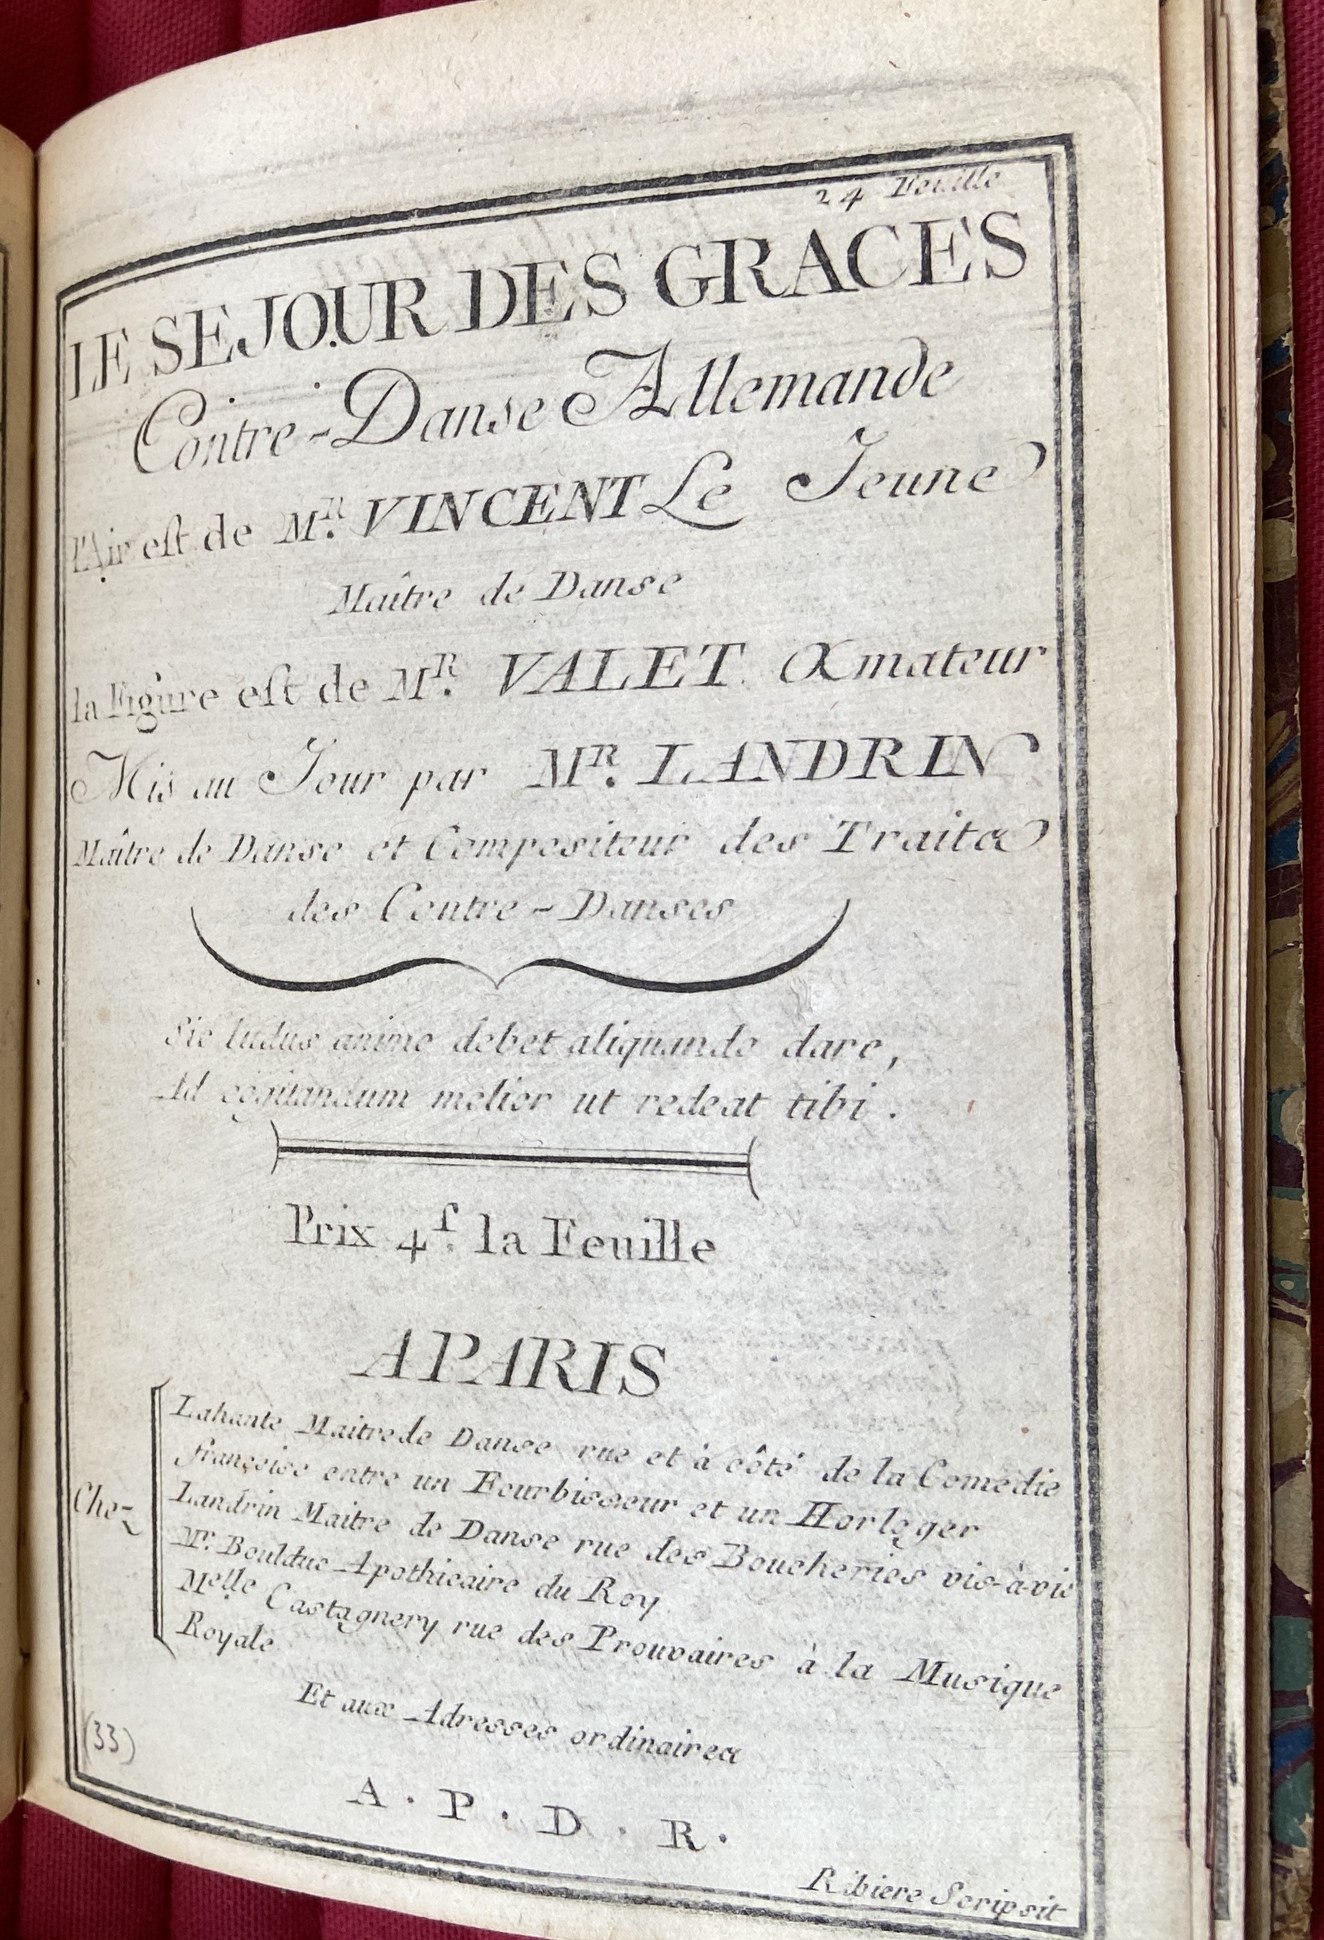 24 Feuille
LE SEJOUR DES GRACES
Contre-Danse Allemande
l'Air est de Mʀ. VINCENT Le Jeune
Maître de Danse
la Figure est de Mʀ. VALET Amateur
Mis au Jour par Mʀ. LANDRIN
Maître de Danse et Compositeur des Traités
des Contre-Danses
Sic ludus animo debet aliquando dare,
Ad cogitandum melior ut redeat tibi.
Prix 4ſ. la Feuille
A PARIS
Chez
Lahante Maitre de Danse rue et à côté de la Comédie
françoise entre un Fourbisseur et un Horloger
Landrin Maitre de Danse rue des Boucheries vis-à-vis
Mr. Boulduc Apothicaire du Roy
Melle Castagnery rue des Prouvaires à la Musique
Royale
Et aux Adresses ordinaires
A. P. D. R.
(33)
Ribiere Scripsit